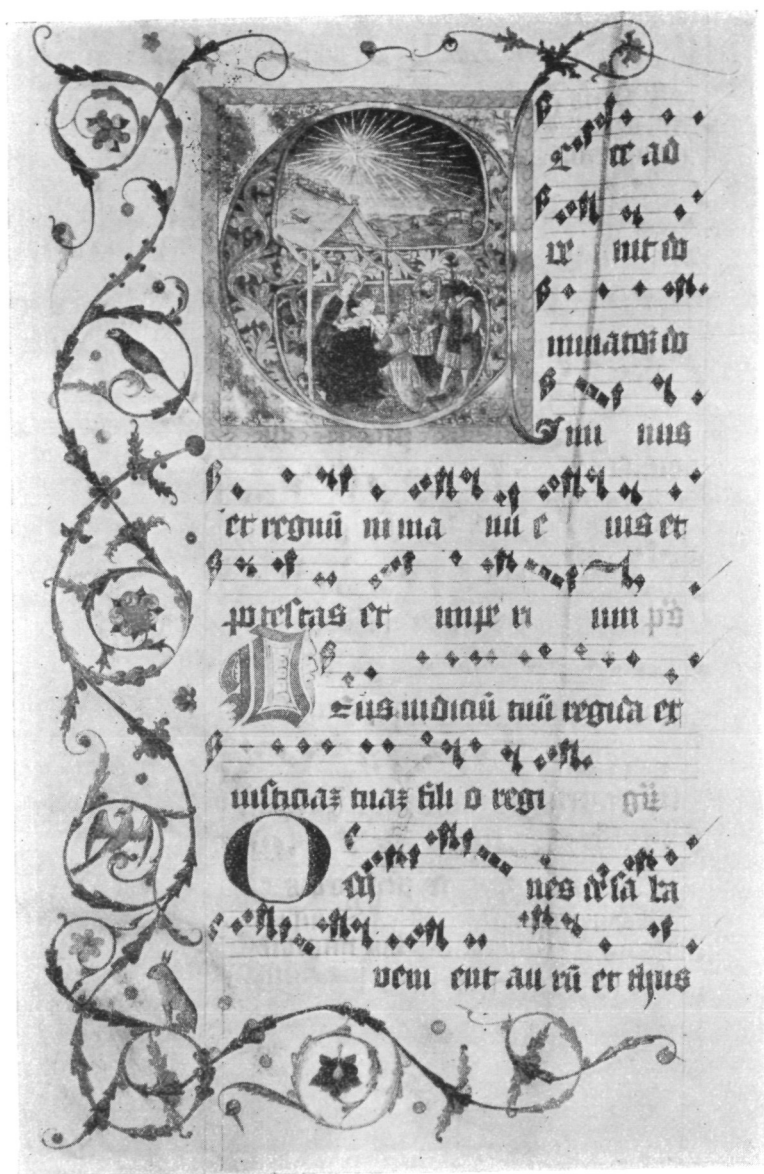 Ecce ad
ve nit do
minator do
mi nus
et regnū in ma nu e ius et
po testas et impe ri um pṡ
Deus iudiciū tuū regi da et
iusticiaꝫ tuaꝫ fili o regi gr̄
Om nes de sa ba
veni ent au rū et thus